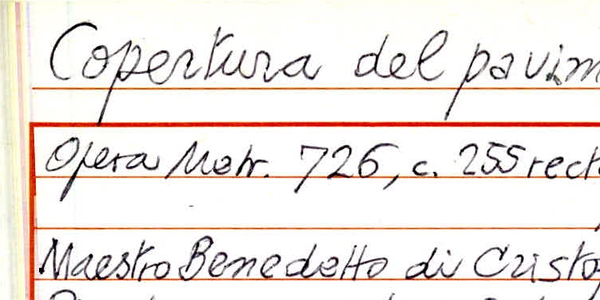 Copertura del pavim
Opera Metr. 726, c. 255 rect
Maestro Benedetto di Cristo